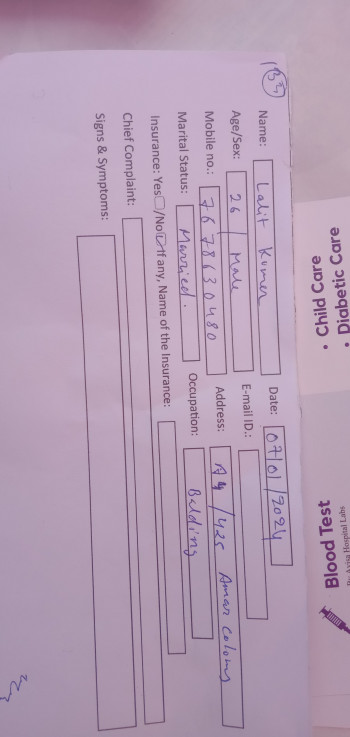 Name: Lalit Kumar Date: 07/01/2024
Age/Sex: 26 / Male E-mail ID.:
Mobile no.: 7678630480 Address: A4/425 Amar Colony
Marital Status: Married. Occupation: Belding
Insurance: Yes/No If any, Name of the Insurance:
Chief Complaint:
Signs & Symptoms:
• Child Care
• Diabetic Care
Blood Test
Hospital Labs